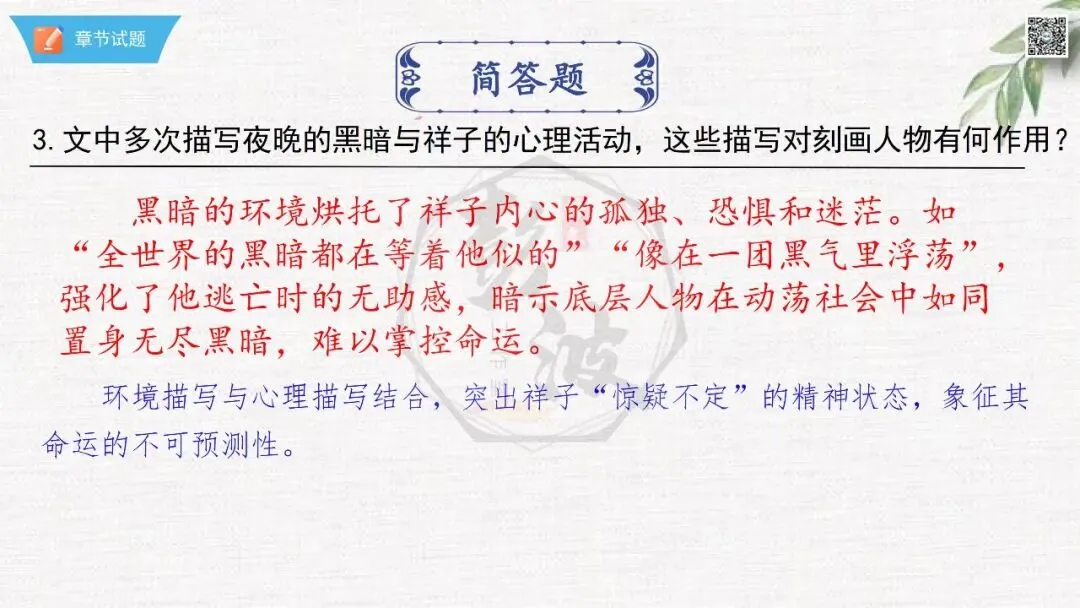 章节试题
简答题
3.文中多次描写夜晚的黑暗与祥子的心理活动，这些描写对刻画人物有何作用？
黑暗的环境烘托了祥子内心的孤独、恐惧和迷茫。如
“全世界的黑暗都在等着他似的”“像在一团黑气里浮荡”，
强化了他逃亡时的无助感，暗示底层人物在动荡社会中如同
置身无尽黑暗，难以掌控命运。
环境描写与心理描写结合，突出祥子“惊疑不定”的精神状态，象征其
命运的不可预测性。